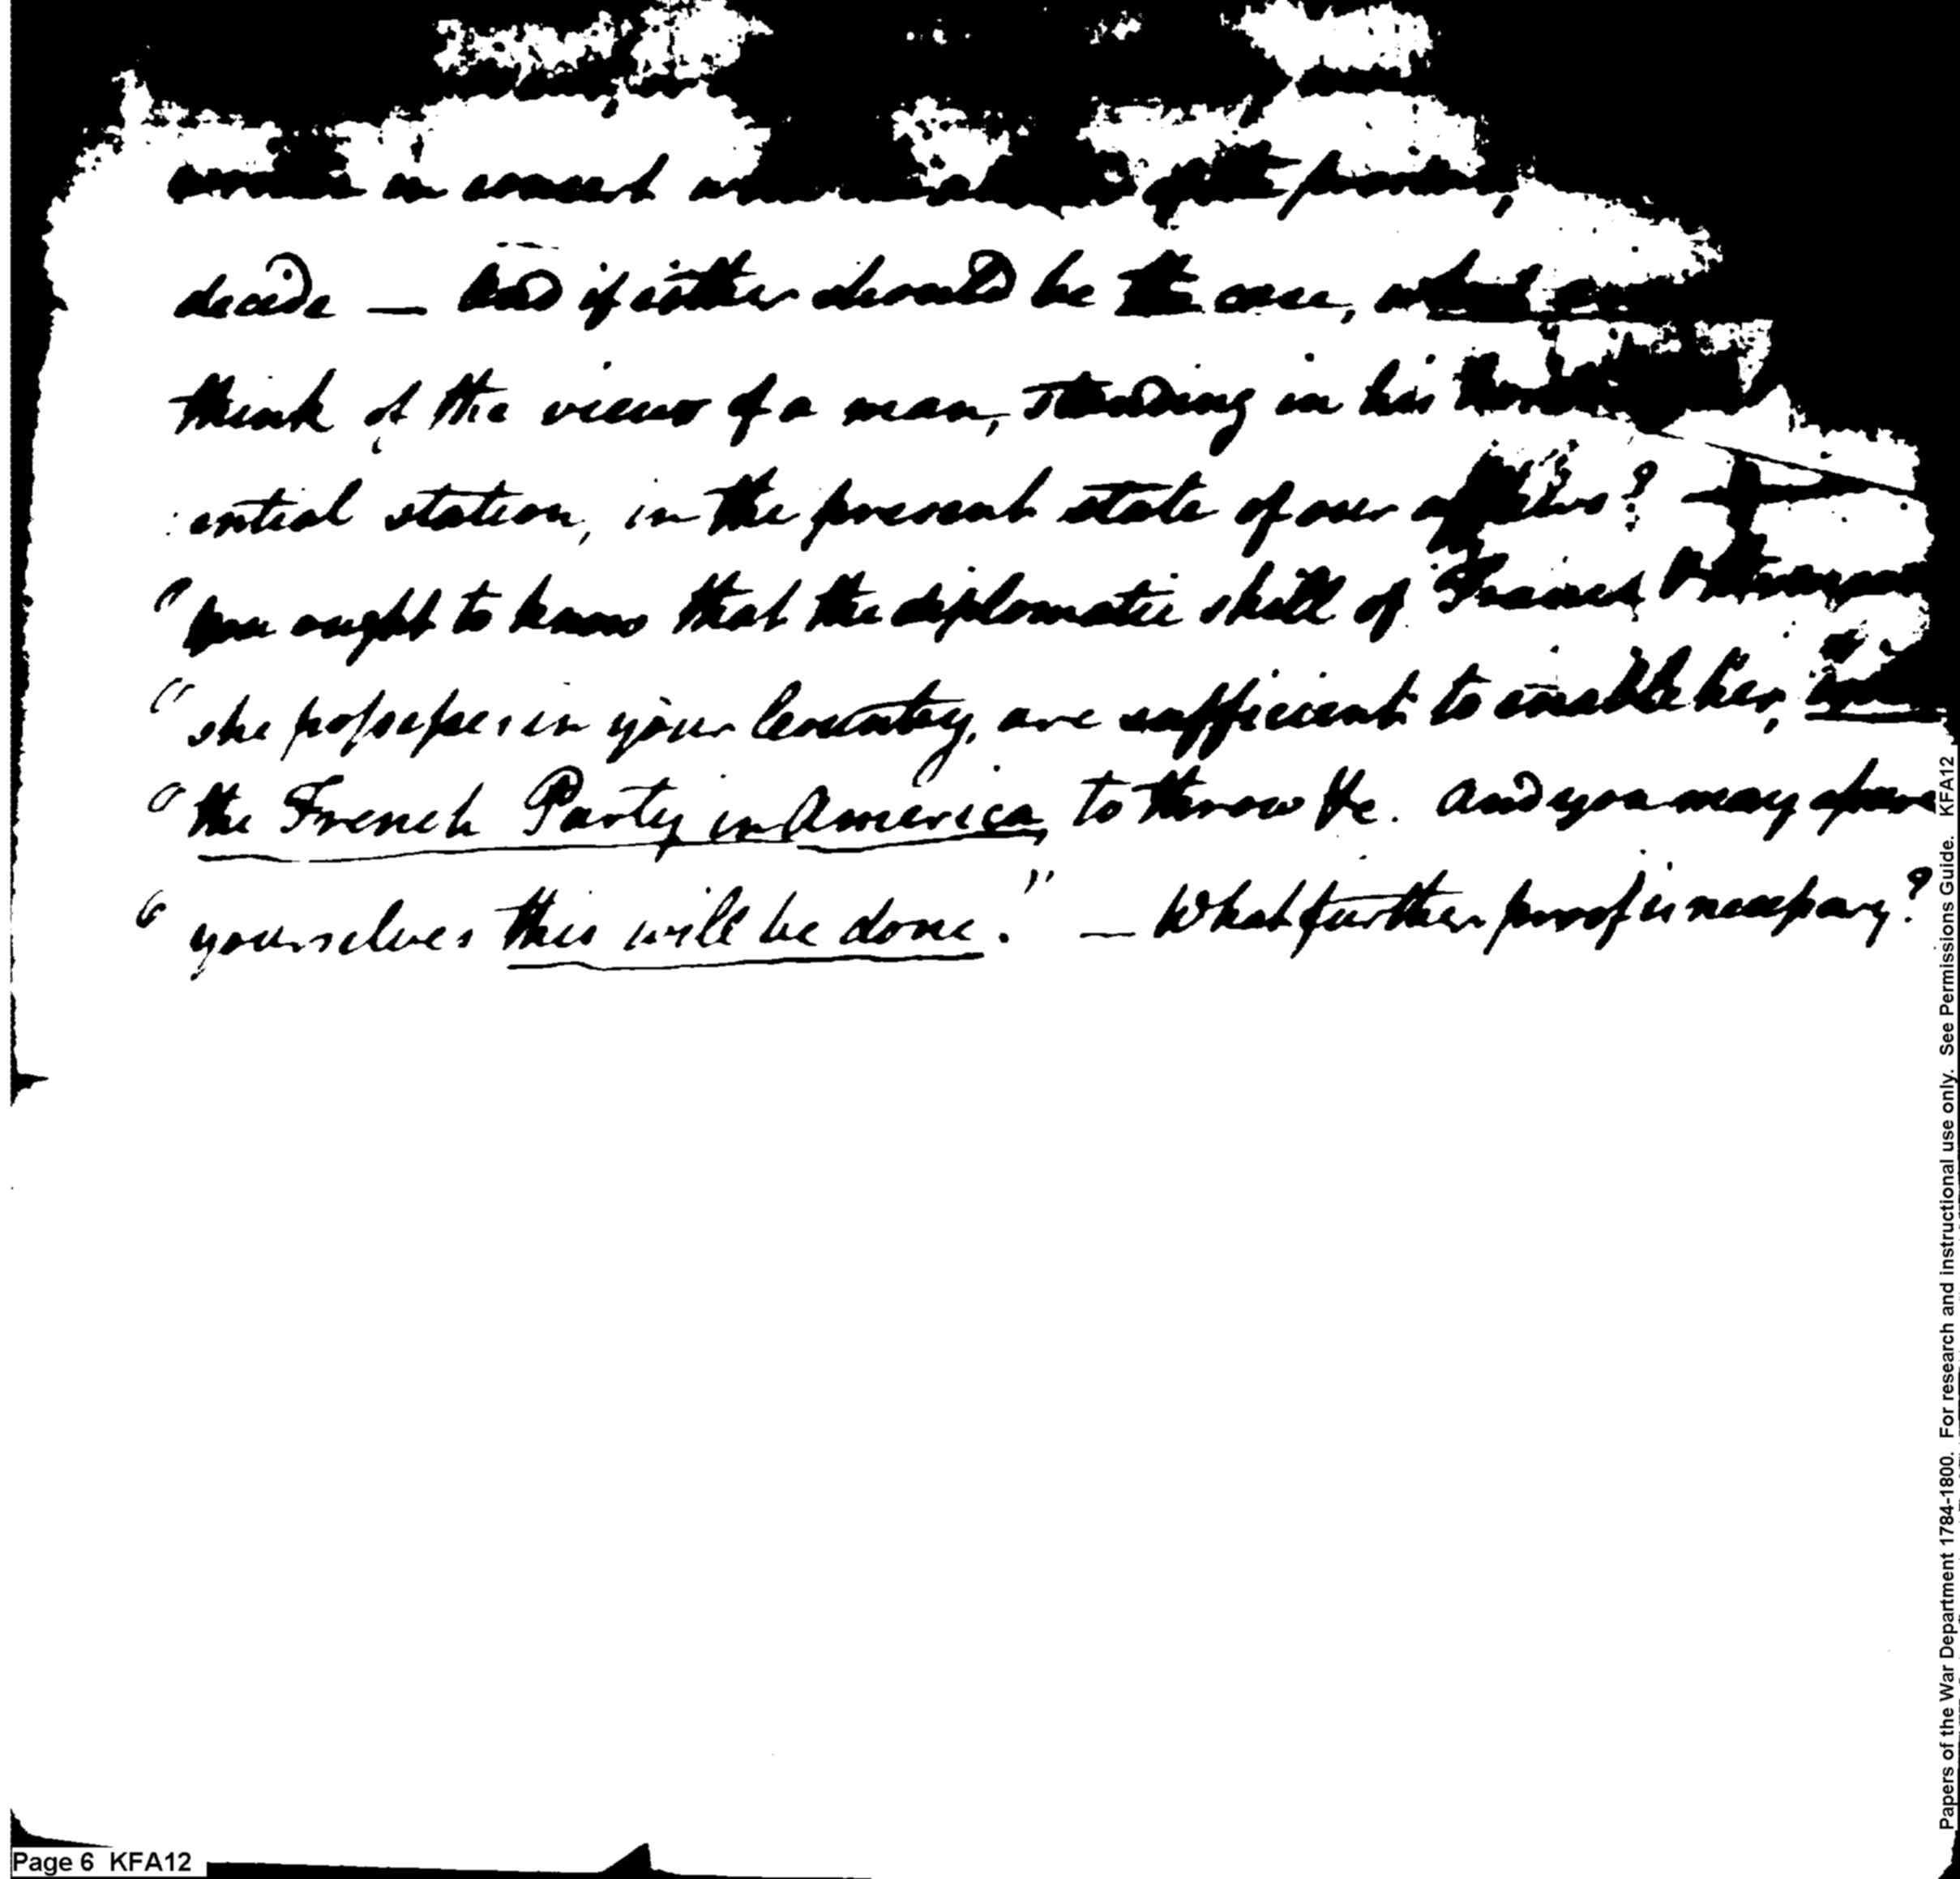 decide — And if either should be the case, what
think of the views of a man, standing in his
:ential station, in the present state of our affairs?
"you ought to know that the diplomatic skill of France,
"she possesses in your Country, are sufficient to enable her,
"the French Party in America, to throw &c. And you may
"yourselves this will be done." — What further proof is necessary?
Page 6 KFA12
Papers of the War Department 1784-1800. For research and instructional use only. See Permissions Guide. KFA12